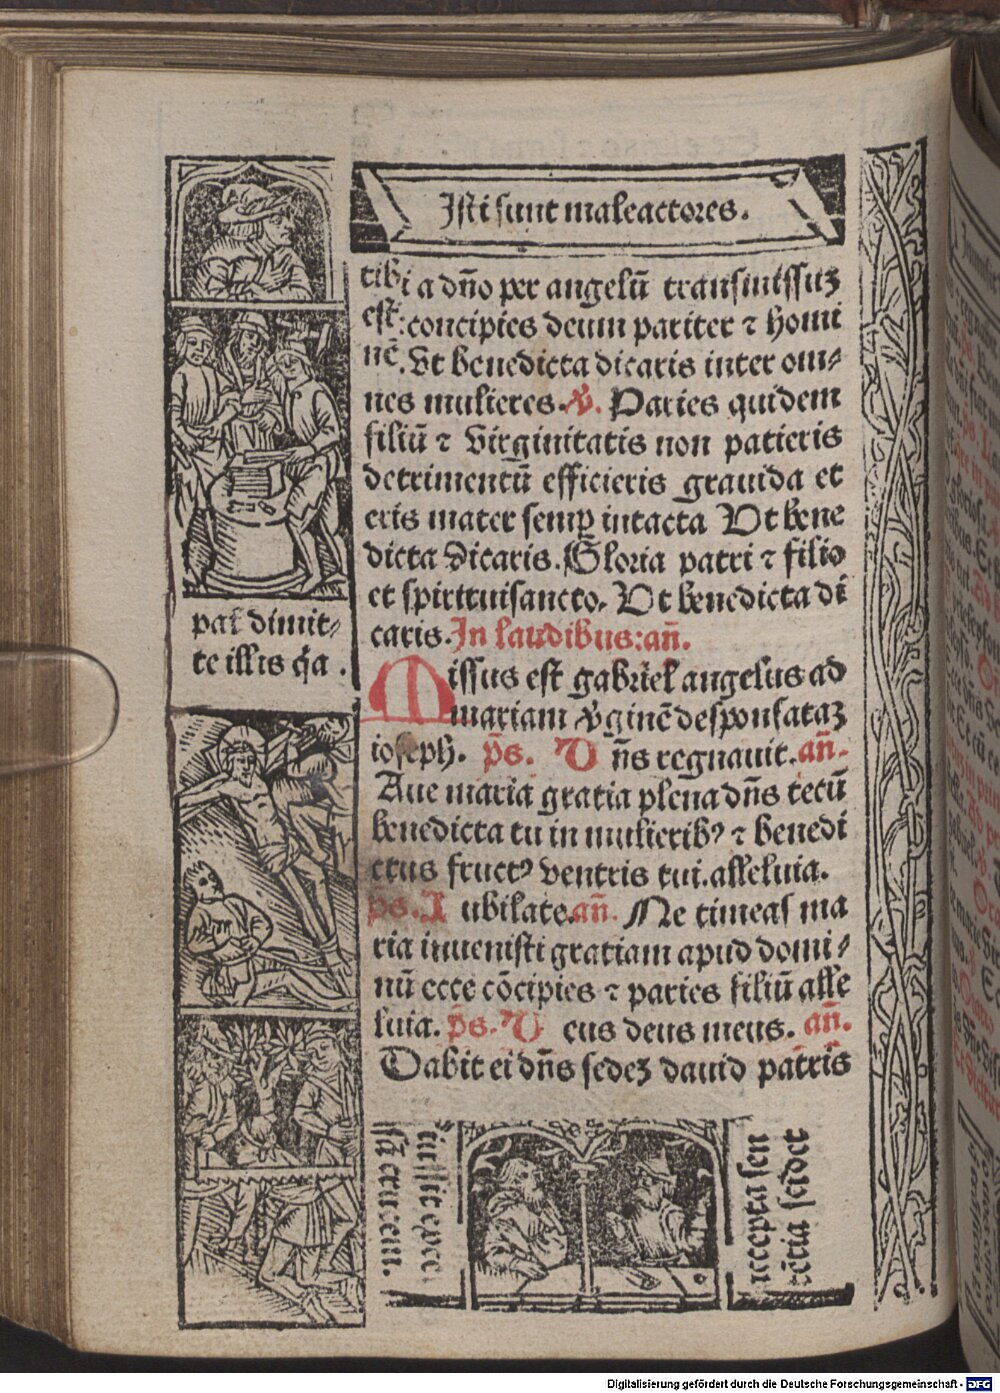 Isti sunt maleactores.
tibi a dño per angelū transmissuʒ
est: concipies deum pariter ⁊ homi
nē. Ut benedicta dicaris inter om⸗
nes mulieres. ℣. Paries quidem
filiū ⁊ virginitatis non patieris
detrimentū efficieris grauida et
eris mater semꝑ intacta Ut bene
dicta dicaris. Gloria patri ⁊ filio
et spirituisancto. Ut benedicta di
caris. In laudibus: añ.
Missus est gabriel angelus ad
mariam v̓ginē desponsataʒ
ioseph. p̄s. D ñs regnauit. añ.
Aue maria gratia plena dñs tecū
benedicta tu in mulierib⁹ ⁊ benedi
ctus fruct⁹ ventris tui. alleluia.
p̄s. I ubilate. añ. Ne timeas ma
ria inuenisti gratiam apud domi⸗
nū ecce cōcipies ⁊ paries filiū alle
luia. p̄s. D eus deus meus. añ.
Dabit ei dñs sedeʒ dauid patris
pat̄ dimit⸗
te illis q̓a .
recepta sen
tētia
Digitalisierung gefördert durch die Deutsche Forschungsgemeinschaft - DFG